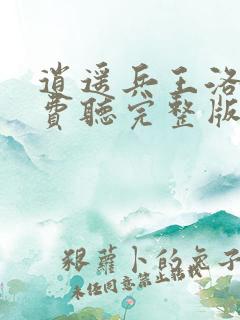 逍遥兵王洛
費聽完整版
狠蘿卜的兔子
未经同意禁止转载